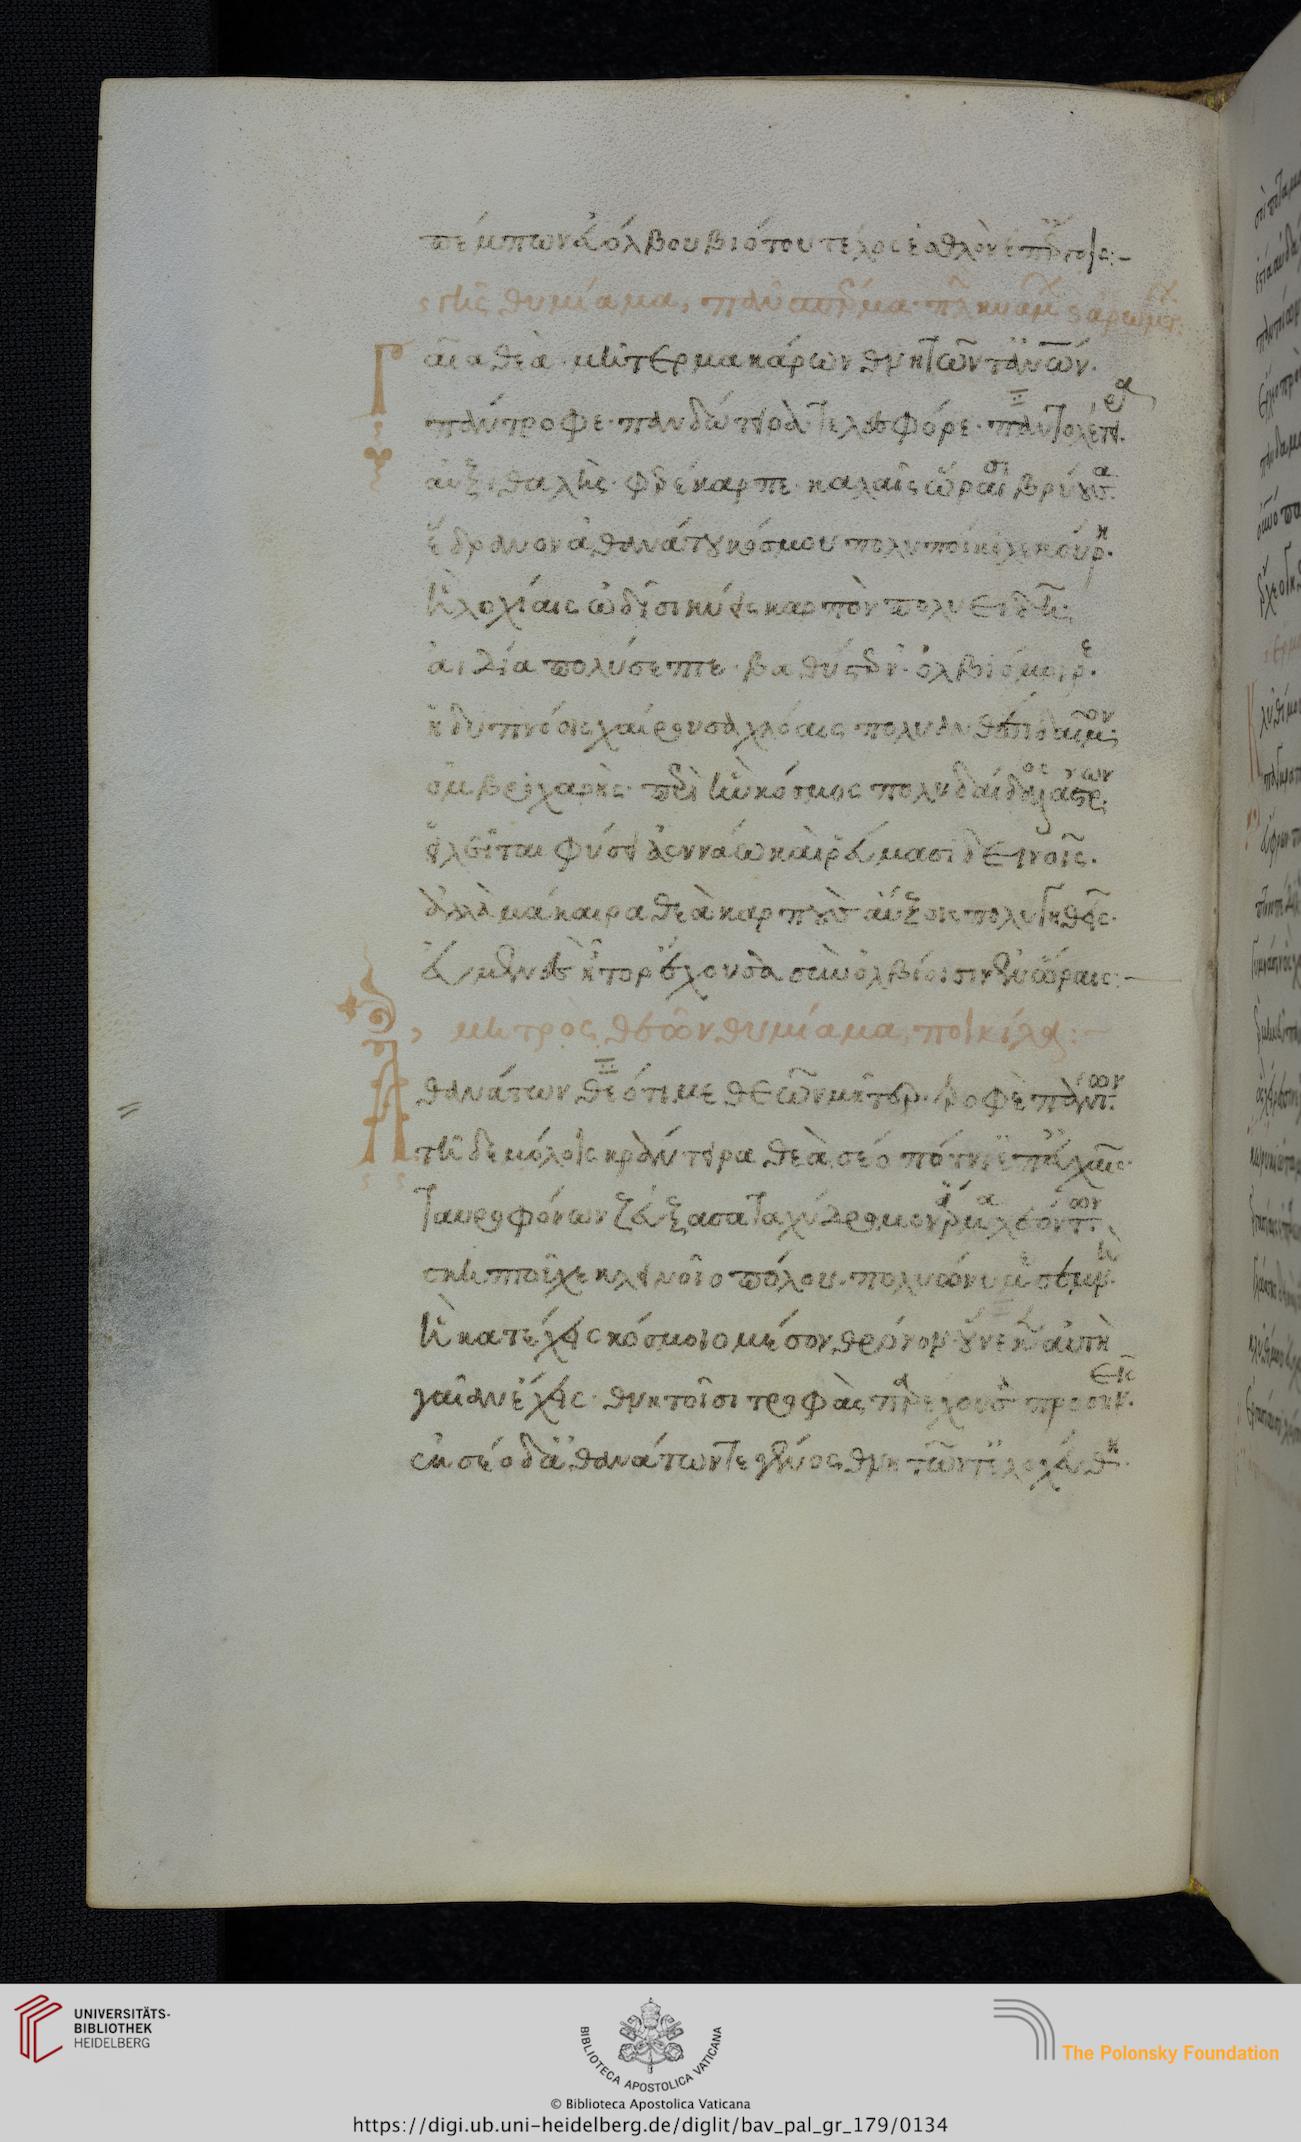 πέμπων εὐόλβου βιότου τέλος ἐσθλὸν ἐπ' αὐτοῖς:-
γῆς θυμίαμα, πᾶν σπέρμα πλὴν κυάμων καὶ ἀρωμάτ.
Γαῖα θεὰ· μῆτερ μακάρων θνητῶν τ' ἀνθρώπων.
παντρόφε· πανδώτειρα· τελεσφόρε· παντολέτειρα.
αὐξιθαλὴς· φερέκαρπε· καλαῖς ὥραισι βρύουσα.
ἕδρανον ἀθανάτου κόσμου πολυποίκιλε κούρη.
ἣ λοχίαις ὠδῖσι κύεις καρπὸν πολυειδῆ:
ἀιδία πολύσεπτε· βαθύστερν'· ὀλβιόμοιρε.
ἡδυπνόοις χαίρουσα χλόαις πολυανθέσι δαῖμον:
ὀμβροχαρὴς· περὶ ἣν κόσμος πολυδαίδαλος ἄστρων.
εἱλεῖται φύσει ἀεννάω καὶ ῥεύμασι δεινοῖς.
ἀλλὰ μάκαιρα θεὰ καρποὺς αὔξοις πολυγηθεῖς·
εὐμενὲς ἦτορ ἔχουσα σὺν ὀλβίοισιν ἐν ὥραις:-
μητρὸς θεῶν θυμίαμα, ποικίλα:-
Ἀθανάτων θεότιμε θεῶν μῆτερ· τροφὲ πάντων.
τῆδε μόλοις κράντειρα θεὰ σέο πότνι' ἐπ' εὐχαῖς.
ταυροφόνων ζεύξασα ταχύδρομον ἅρμα λεόντων
σκηπτοῦχε κλεινοῖο πόλου. πολυώνυμε σεμνή.
ἣ κατέχεις κόσμοιο μέσον θρόνον οὕνεκεν αὐτὴ
γαῖαν ἔχεις· θνητοῖσι τροφὰς παρέχουσα προσηνεῖς.
ἐκ σέο δ' ἀθανάτων τε γένος θνητῶν τ' ἐλοχεύθη.
UNIVERSITÄTS-
BIBLIOTHEK
HEIDELBERG
BIBLIOTECA APOSTOLICA VATICANA
The Polonsky Foundation
© Biblioteca Apostolica Vaticana
https://digi.ub.uni-heidelberg.de/diglit/bav_pal_gr_179/0134